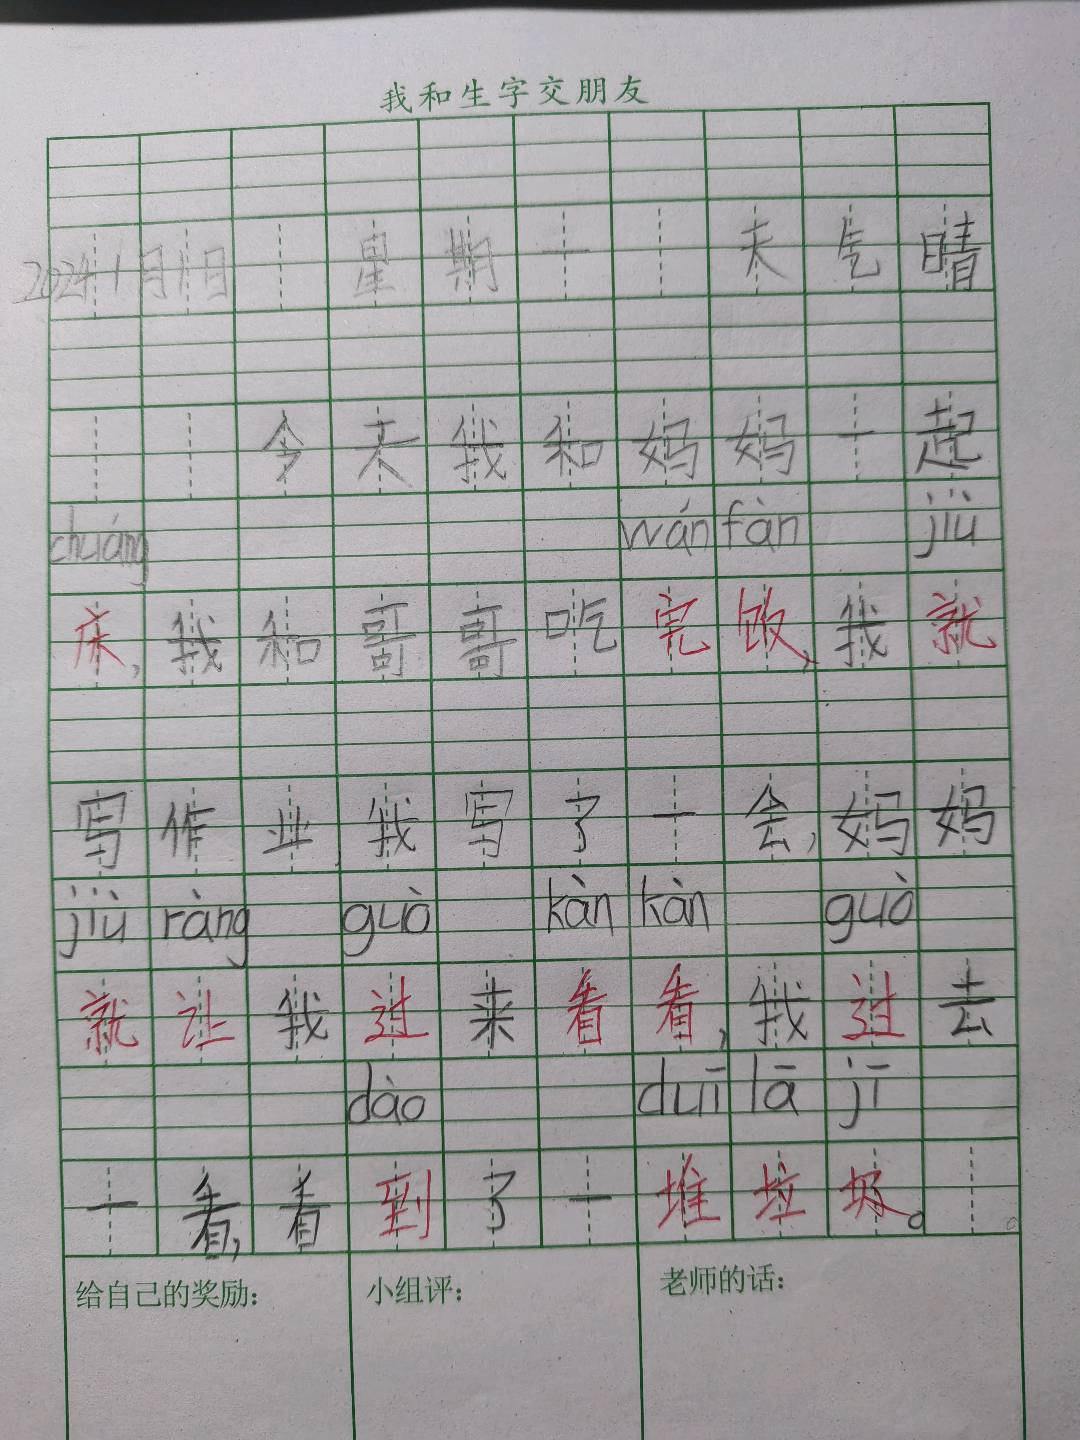 我和生字交朋友
2024 1月1日 星期一 天气晴
今天我和妈妈一起
chuáng wán fàn jiù
床,我和哥哥吃完饭,我就
写作业,我写了一会,妈妈
jiù ràng guò kàn kàn guò
就让我过来看看,我过去
dào duī lā jī
一看,看到了一堆垃圾。
给自己的奖励: 小组评: 老师的话: